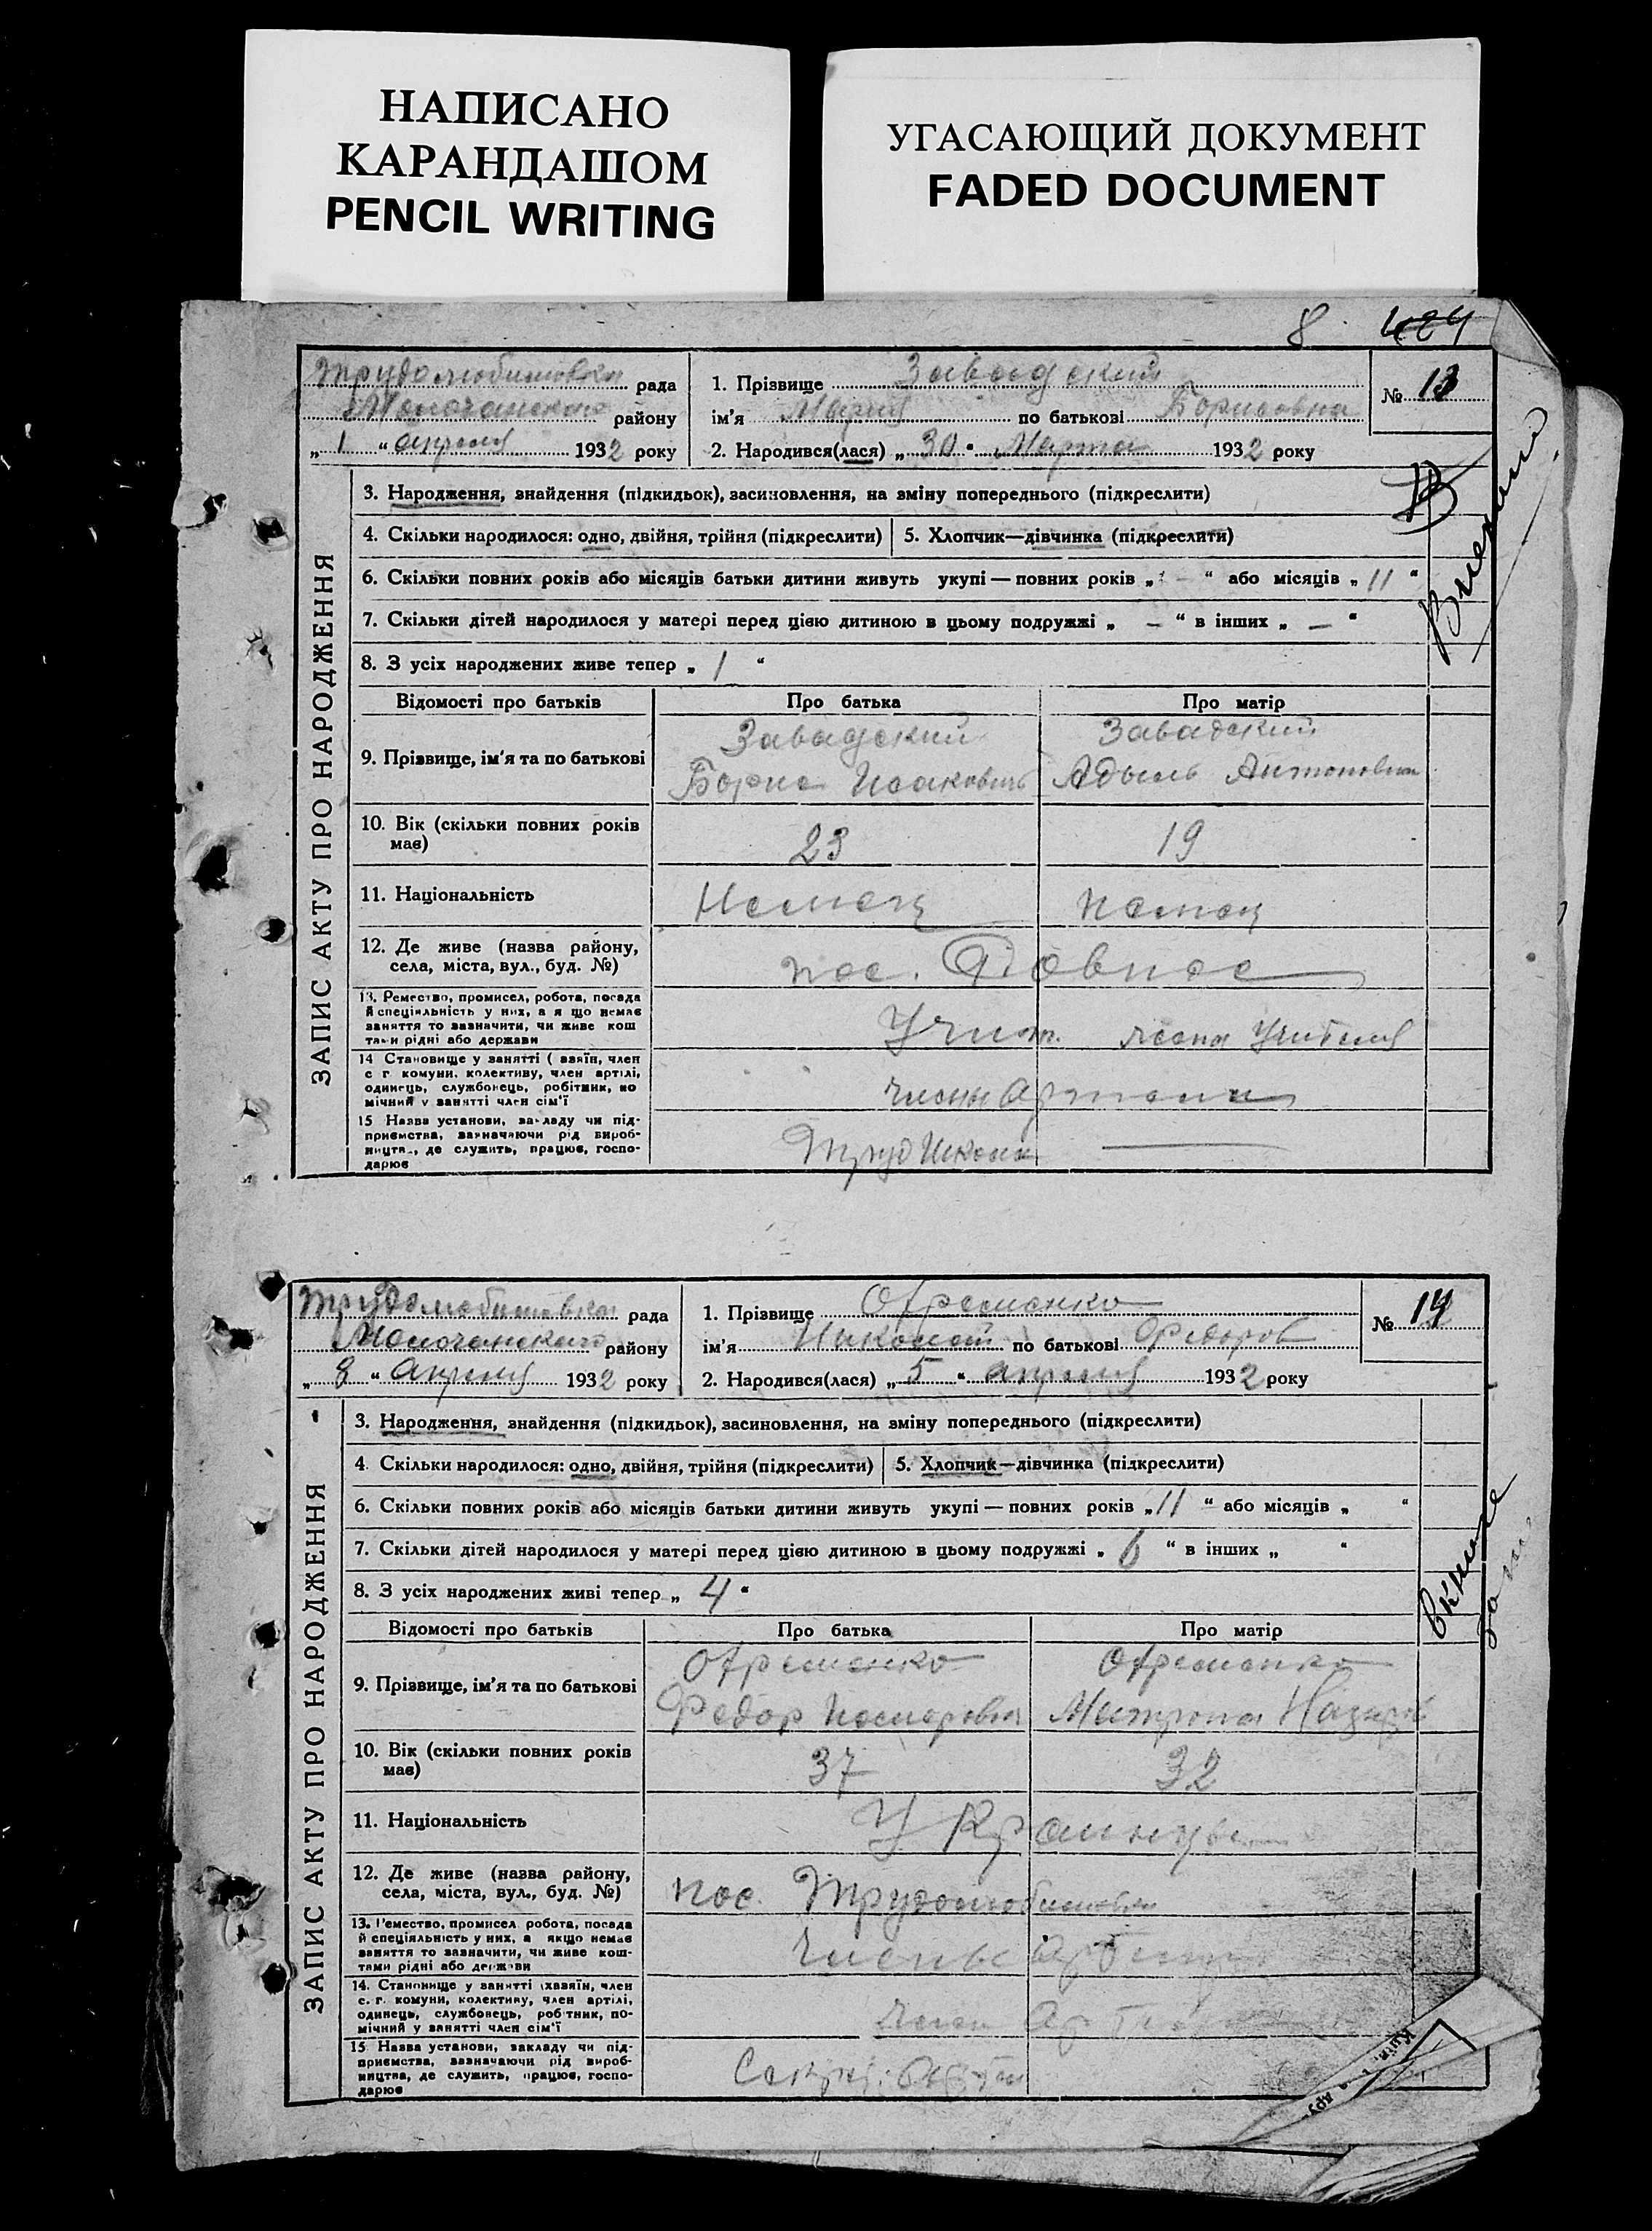 НАПИСАНО
КАРАНДАШОМ
PENCIL WRITING
УГАСАЮЩИЙ ДОКУМЕНТ
FADED DOCUMENT
8 484
Трудолюбимовка рада
Молочанского району
„ 1 “ апреля 1932 року
1. Прізвище Завадский
ім’я Мария по батькові Борисовна
2. Народився(лася) „ 30 “ Марта 1932 року
№ 13
ЗАПИС АКТУ ПРО НАРОДЖЕННЯ
3. Народження, знайдення (підкидьок), засиновлення, на зміну попереднього (підкреслити)
4. Скільки народилося: одно, двійня, трійня (підкреслити) 5. Хлопчик—дівчинка (підкреслити)
6. Скільки повних років або місяців батьки дитини живуть укупі — повних років „ – “ або місяців „ 11 “
7. Скільки дітей народилося у матері перед цією дитиною в цьому подружжі „ – “ в інших „ – “
8. З усіх народжених живе тепер „ 1 “
Відомості про батьків Про батька Про матір
9. Прізвище, ім’я та по батькові
Завадский Завадский
Борис Исакович Адыль Антоновна
10. Вік (скільки повних років має) 23 19
11. Національність Немец немец
12. Де живе (назва району, села, міста, вул., буд. №) пос.
13. Ремество, промисел, робота, посада й спеціяльність у них, а я що немає заняття то зазначити, чи живе кош тами рідні або держави
Учит. жена Учителя
14 Становище у занятті ( азяїн, член с г комуни, колективу, член артілі, одинець, службовець, робітник, по мічний у занятті член сім’ї
члены Артели
15 Назва установи, закладу чи підприємства, зазначаючи рід виробництва, де служить, працює, господарює
Труд Школа —
Трудолюбимовка рада
Молочанского району
„ 8 “ Апреля 1932 року
1. Прізвище Офременко
ім’я Николай по батькові Федоров
2. Народився(лася) „ 5 “ апреля 1932 року
№ 14
ЗАПИС АКТУ ПРО НАРОДЖЕННЯ
3. Народження, знайдення (підкидьок), засиновлення, на зміну попереднього (підкреслити)
4. Скільки народилося: одно, двійня, трійня (підкреслити) 5. Хлопчик—дівчинка (підкреслити)
6. Скільки повних років або місяців батьки дитини живуть укупі — повних років „ 11 “ або місяців „ “
7. Скільки дітей народилося у матері перед цією дитиною в цьому подружжі „ 6 “ в інших „ “
8. З усіх народжених живі тепер „ 4 “
Відомості про батьків Про батька Про матір
9. Прізвище, ім’я та по батькові
Офременко Офременко
Федор Мотрона Назар
10. Вік (скільки повних років має) 37 32
11. Національність Украинцы
12. Де живе (назва району, села, міста, вул., буд. №) пос. Трудолюбимовка
13. Ремество, промисел робота, посада й спеціяльність у них, а якщо немає заняття то зазначити, чи живе коштами рідні або держави
Члены
14. Становище у занятті (хазяїн, член с. г. комуни, колективу, член артілі, одинець, службовець, робітник, помічний у занятті член сім’ї
15 Назва установи, закладу чи підприємства, зазначаючи рід виробництва, де служить, працює, господарює